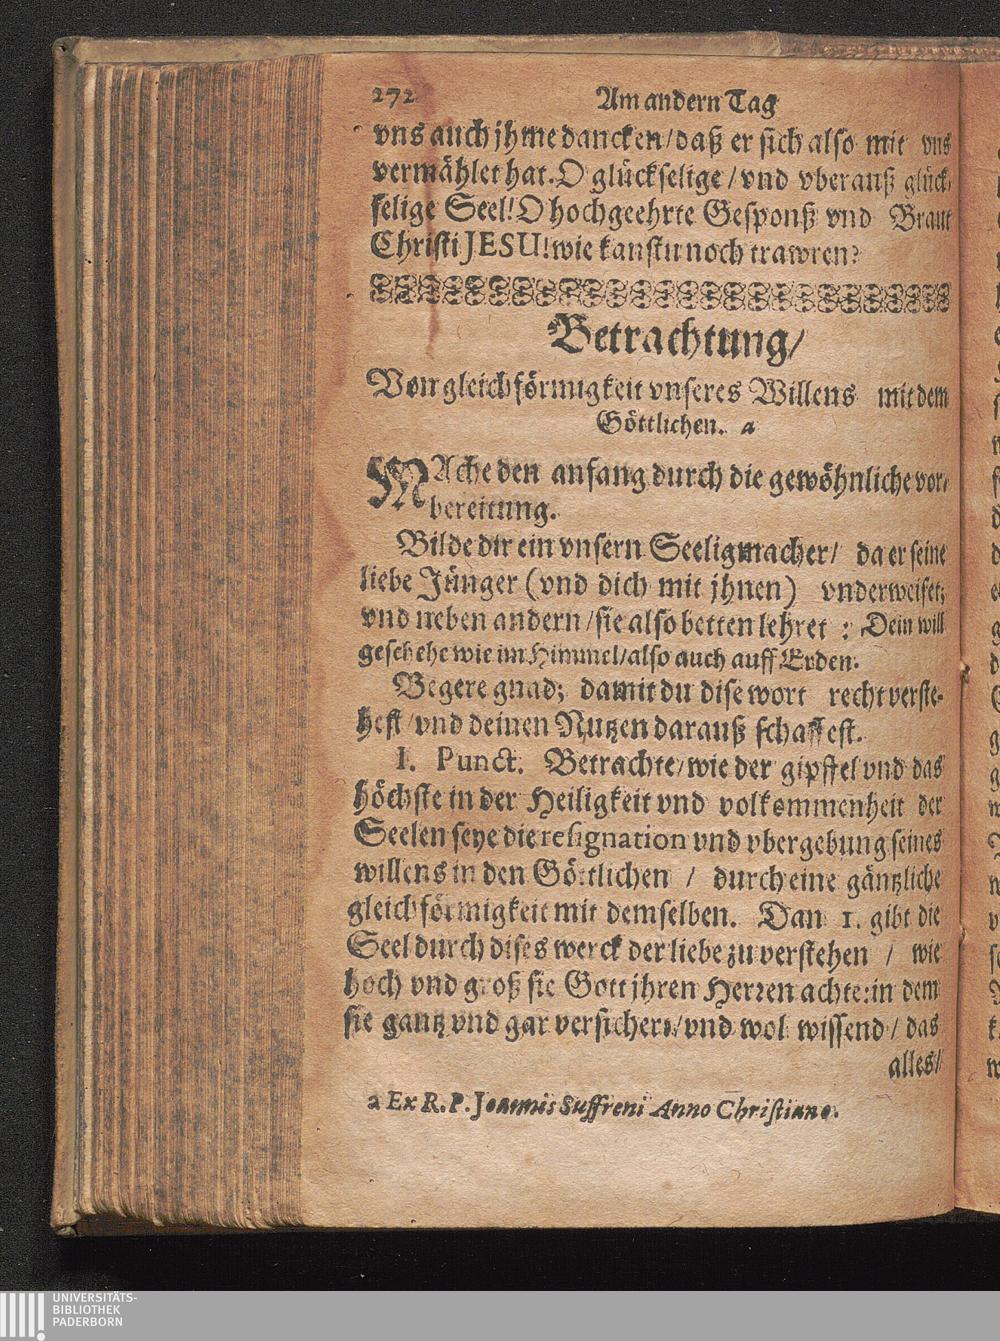 272 Am andern Tag
vns auch jhme dancken/daß er sich also mit vns
vermählet hat. O glückselige/vnd vberauß glück-
selige Seel! O hochgeehrte Gesponß vnd Braut
Christi JESU! wie kanstu noch trawren?
Betrachtung/
Von gleichförmigkeit vnseres Willens mit dem
Göttlichen. a
MAche den anfang durch die gewöhnliche vor-
bereitung.
Bilde dir ein vnsern Seeligmacher/ da er seine
liebe Jünger (vnd dich mit jhnen) vnderweiset;
vnd neben andern/sie also betten lehret: Dein will
geschehe wie im Himmel/also auch auff Erden.
Begere gnad; damit du dise wort recht verste-
hest/vnd deinen Nutzen darauß schaffest.
I. Punct. Betrachte/wie der gipffel vnd das
höchste in der Heiligkeit vnd volkommenheit der
Seelen seye die resignation vnd vbergebung seines
willens in den Göttlichen / durch eine gäntzliche
gleichförmigkeit mit demselben. Dan 1. gibt die
Seel durch dises werck der liebe zu verstehen / wie
hoch vnd groß sie Gott jhren Herren achte: in dem
sie gantz vnd gar versichert/vnd wol wissend/das
alles/
a Ex R. P. Joannis Suffreni Anno Christiano.
UNIVERSITÄTS-
BIBLIOTHEK
PADERBORN